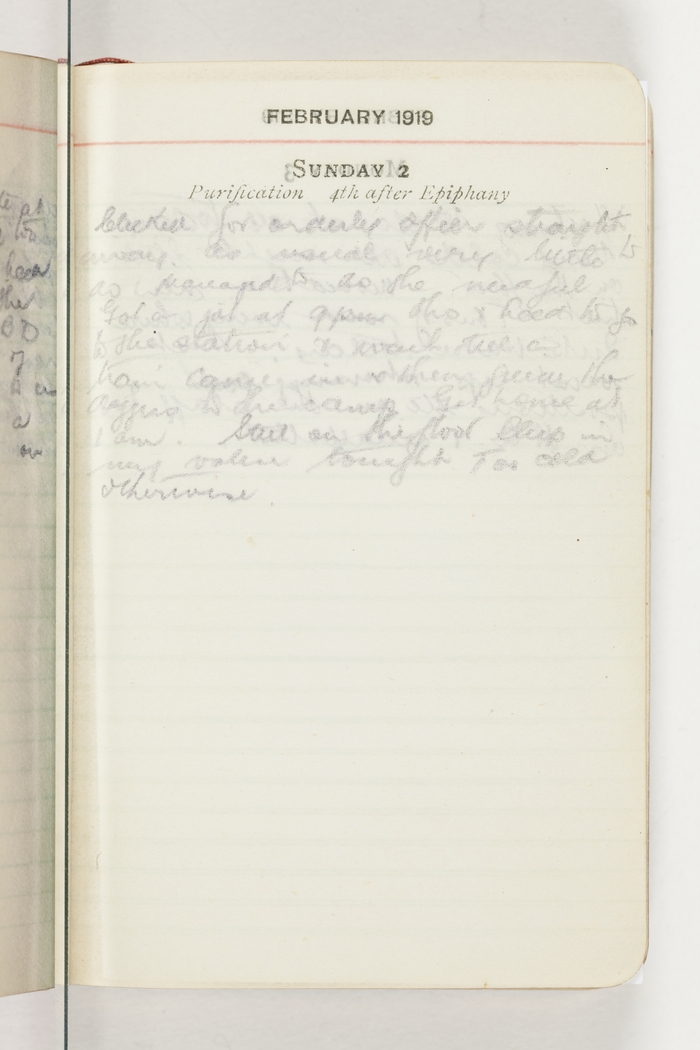 FEBRUARY 1919
SUNDAY 2
Purification 4th after Epiphany
Clicked for orderly officer straight
away. As usual very little to
do. Managed to do the needful
Got a job at 9pm tho & had to go
to the station & wait till a
train came in & then the
to the camp Got home at
1 am. Still on the floor Sleep in
my valise tonight Too cold
otherwise.